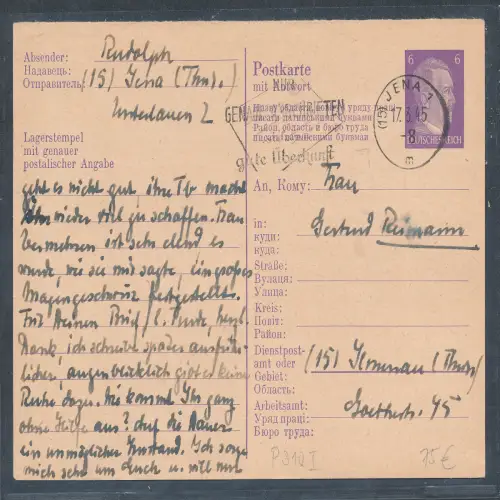 Absender: Rudolph
Надавець:
Отправитель: (15) Jena (Thür.)
Unterlauen 2
Lagerstempel
mit genauer
postalischer Angabe
geht es nicht gut, ihre Tb macht
ihr wieder viel zu schaffen. Frau
Vermehren ist sehr elend es
wurde, wie sie mir sagte, ein großes
Magengeschwür festgestellt.
Für Deinen Brief, l. herzl.
Dank, ich schreibe später ausführ-
licher, augenblicklich gibt es keine
Ruhe dazu. Wie kommt Ihr ganz
ohne Hilfe aus? Auf die Dauer
ein unmöglicher Zustand. Ich sorge
mich sehr um Euch u. will nur
Postkarte
mit Antwort
NUR
gute Überkunft
6 6
DEUTSCHES REICH
(15) JENA 1
17.3.45
-8
m
An, Кому: Frau
Gertrud Reimann
in:
куди:
куда:
Straße:
Вулаця:
Улица:
Kreis:
Повіт:
Район:
Dienstpost-
amt oder (15) Ilmenau (Thür.)
Gebiet:
Область:
Arbeitsamt: Goethestr. 45
Уряд праці:
Бюро труда:
P 310 I
75€